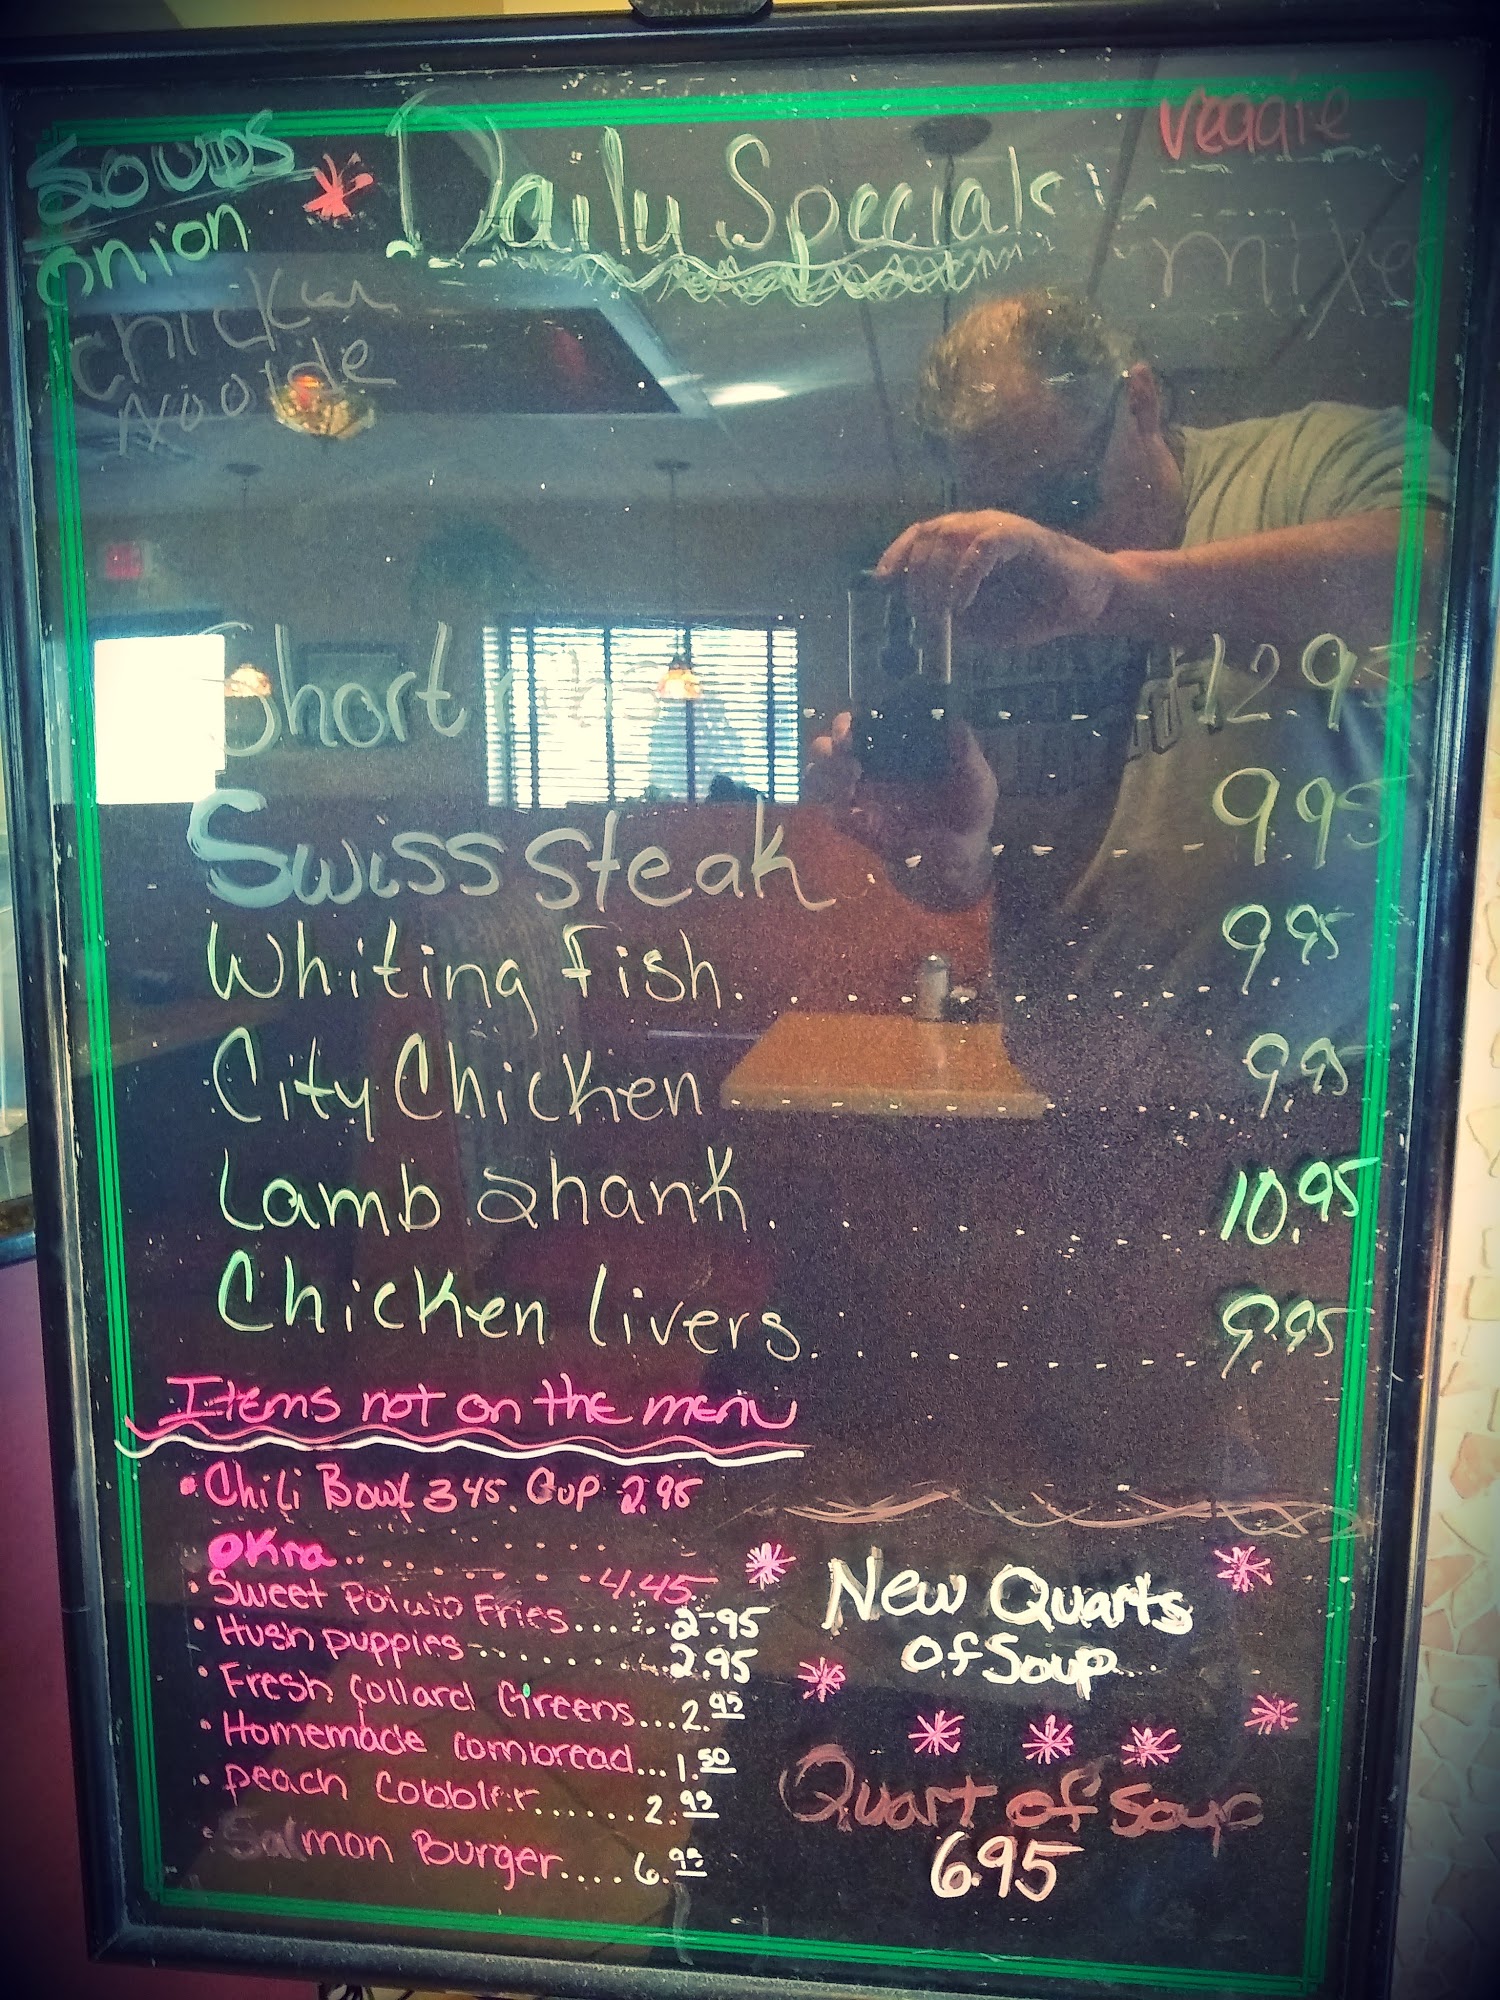 Soups
onion
chicken
Noolde
* Daily Specials
veggie
mixed
Short ribs . . . . 12.95
Swiss Steak . . . . . 9.95
Whiting fish. . . . . . . . . . . 9.95
City Chicken . . . . . . . . . . . 9.95
Lamb Shank . . . . . . . . . . 10.95
Chicken livers . . . . . . . . . . 9.95
Items not on the menu
• Chili Bowl 3.45. Cup 2.95
Okra . . . . . . . . . 4.45
• Sweet Potato Fries...... 2.95
• Hush puppies......... 2.95
• Fresh Collard Greens... 2.95
• Homemade cornbread... 1.50
• peach Cobbler...... 2.95
• Salmon Burger.... 6.95
New Quarts
Of Soup
Quart of Soup
6.95